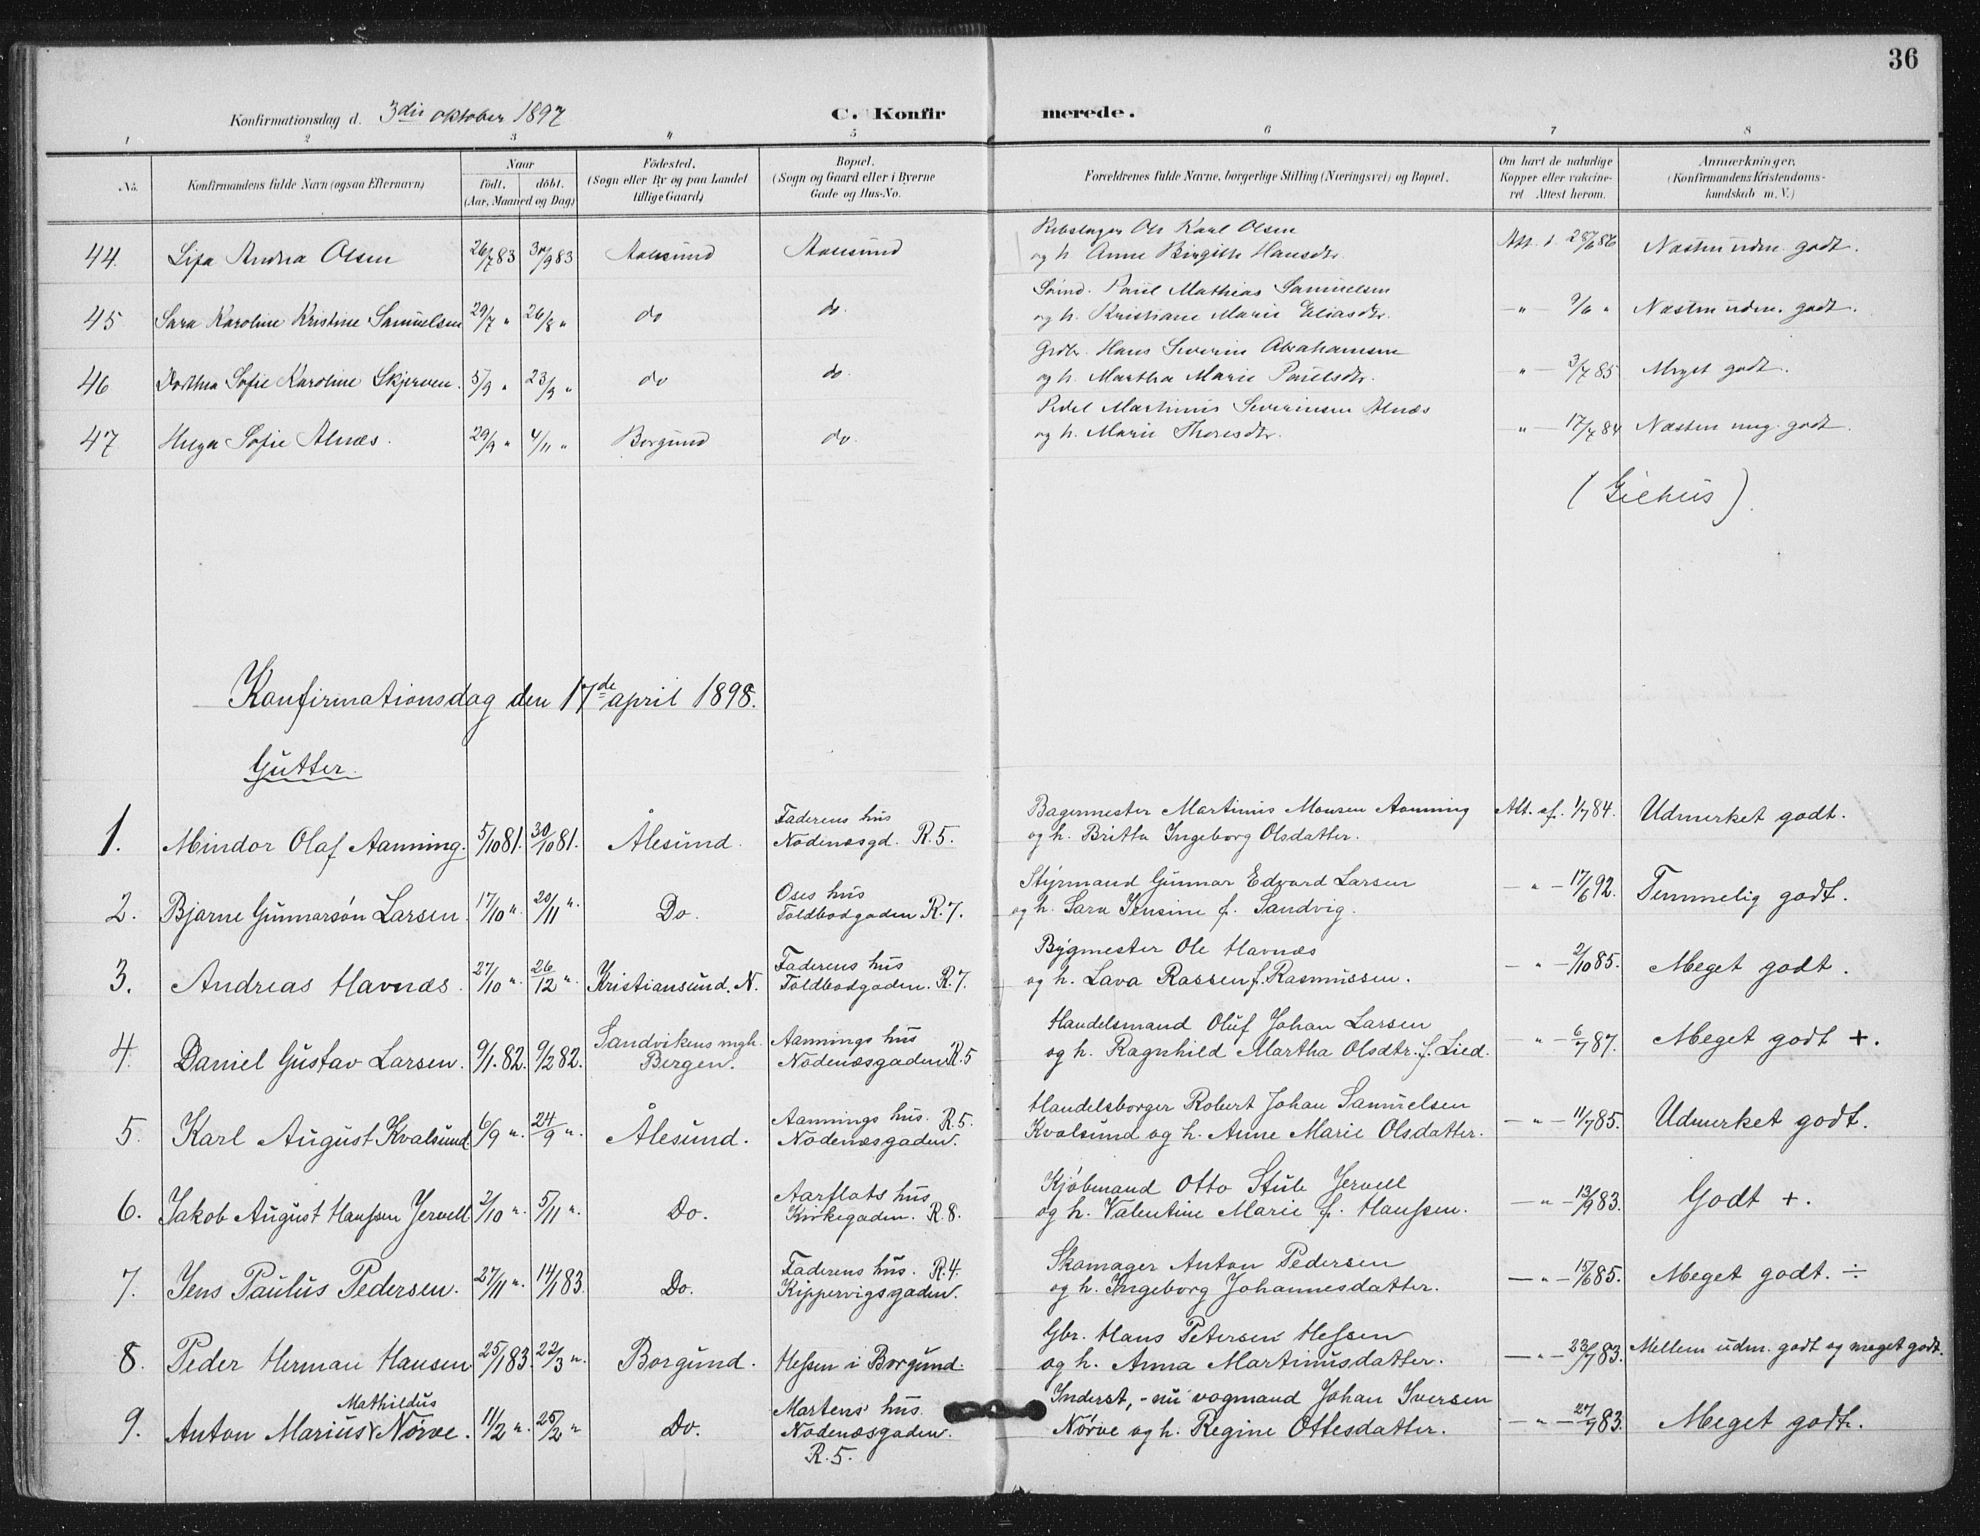 36
Konfirmationsdag d. 3die oktober 1897 C. Konfirmerede.
1 2 3 4 5 6 7 8
No. Konfirmandens fulde Navn (ogsaa Efternavn) Naar födt. döbt. (Aar, Maaned og Dag) Födested. (Sogn eller By og paa Landet tillige Gaard) Bopæl. (Sogn og Gaard eller i Byerne Gade og Hus-No. Forældrenes fulde Navne, borgerlige Stilling (Næringsvei) og Bopæl. Om havt de naturlige Kopper eller vakcineret Attest herom. Anmærkninger. (Konfirmandens Kristendomskundskab m. V.)
44. Lisa Andrea Olsen 26/7 83 30/9 83 Aalesund Aalesund Rebslager Ole Karl Olsen
og h. Anne Birgithe Hansdtr. Att. d. 28/6 86 Næsten udm. godt.
45 Sara Karoline Kristine Samuelsen 29/7 " 26/8 " do do. Paul Mathias Samuelsen
og h. Kristiane Marie Eliasdtr. — " — 9/6 " Næsten udm. godt.
46 Dorthea Sofie Karoline Skjerven. 5/9 " 23/9 " do do. Hans Severin Abrahamsen
og h. Martha Marie Paulsdtr. " — 3/7 85 Meget godt.
47 Helga Sofie Alnæs. 29/9 " 4/11 " Borgund do. Martinus Severinsen Alnæs
og h. Marie Thoresdtr. " — 17/7 84 Næsten meg. godt.
Konfirmationsdag den 17de april 1898.
Gutter.
1. Mindor Olaf Aanning. 5/10 81. 30/10 81. Ålesund. Faderens hus
Nodenæsgd. R. 5. Bagermester Martinus Monsen Aanning
og h. Britta Ingeborg Olsdatter. Att. af. 1/7 84. Udmerket godt.
2. Bjarne Gunnarsøn Larsen. 17/10 " 20/11 " Do. Oses hus
Toldbodgaden R. 7. Styrmand Gunnar Edvard Larsen
og h. Sara Jensine f. Sandvig. — " — 17/6 92. Temmelig godt.
3. Andreas Havnæs. 27/10 " 26/12 " Kristiansund. N. Faderens hus
Toldbodgaden. R. 7. Bygmester Ole Havnæs
og h. Lava Rassen f. Rasmussen. — " — 2/10 85. Meget godt.
4. Daniel Gustav Larsen. 9/1. 82. 9/2 82. Sandvikens mgh.
Bergen. Aannings hus
Nodenæsgaden R. 5 Handelsmand Oluf Johan Larsen
og h. Ragnhild Martha Olsdtr. f. Lied. — " — 6/7 87. Meget godt +.
5. Karl August Kvalsund 6/9 " 24/9 " Ålesund. Aannings hus. R. 5.
Nodenæsgaden. Handelsborger Robert Johan Samuelsen
Kvalsund og h. Anne Marie Olsdatter. — " — 11/7 85. Udmerket godt.
6. Jakob August Hanssen Jervell 2/10 " 5/11 " Do. Aarflots hus
Kirkegaden. R. 8. Kjøbmand Otto Stub Jervell
og h. Valentine Marie f. Hanssen. — " — 13/9 83. Godt +.
7. Jens Paulus Pedersen. 27/11 " 14/1 83. Do. Faderens hus. R. 4.
Kippervigsgaden. Skomager Anton Pedersen
og h. Ingeborg Johannesdatter. — " — 15/6 85. Meget godt. ÷
8. Peder Herman Hansen 25/1 83. 22/3 " Borgund. Hessen i Borgund. Gbr. Hans Petersen Hessen
og h. Anna Martinusdatter. — " — 23/7 83. Mellem udm. godt og meget godt.
9. Anton Marius Mathildus Nørve. 11/2 " 25/2 " Do. Martens' hus.
Nodenæsgaden.
R. 5. Inderst, - nu vognmand Johan Iversen
Nørve og h. Regine Ottesdatter. — " — 27/9 83. Meget godt.